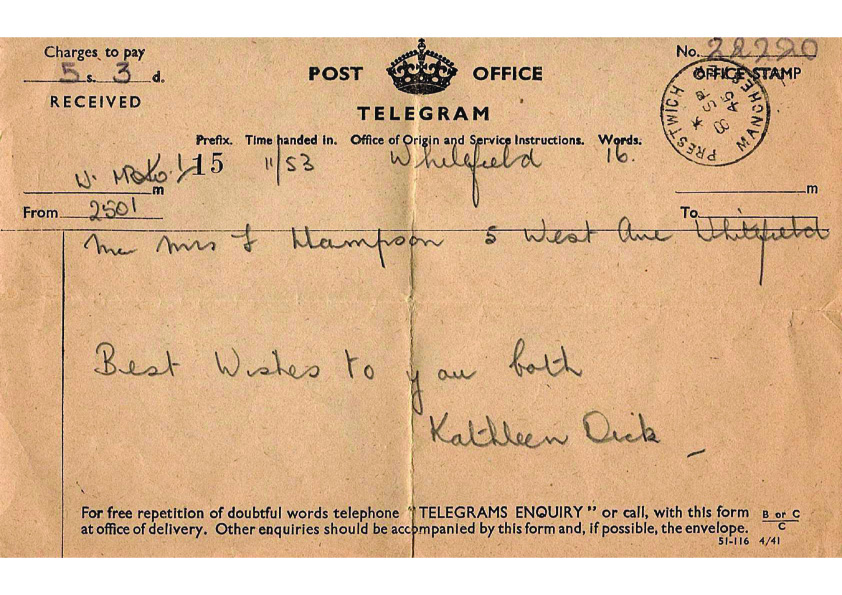 Charges to pay
5 s. 3 d.
RECEIVED
POST OFFICE
TELEGRAM
No. 28220
OFFICE STAMP
PRESTWICH MANCHESTER
45
Prefix. Time handed in. Office of Origin and Service Instructions. Words.
15 11/53 Whitefield 16.
m
m
From 2501
To
Mr Mrs F Hampson 5 West Ave Whitefield
Best Wishes to you both
Kathleen Dick
For free repetition of doubtful words telephone "TELEGRAMS ENQUIRY" or call, with this form
at office of delivery. Other enquiries should be accompanied by this form and, if possible, the envelope.
B or C
C
51-116 4/41